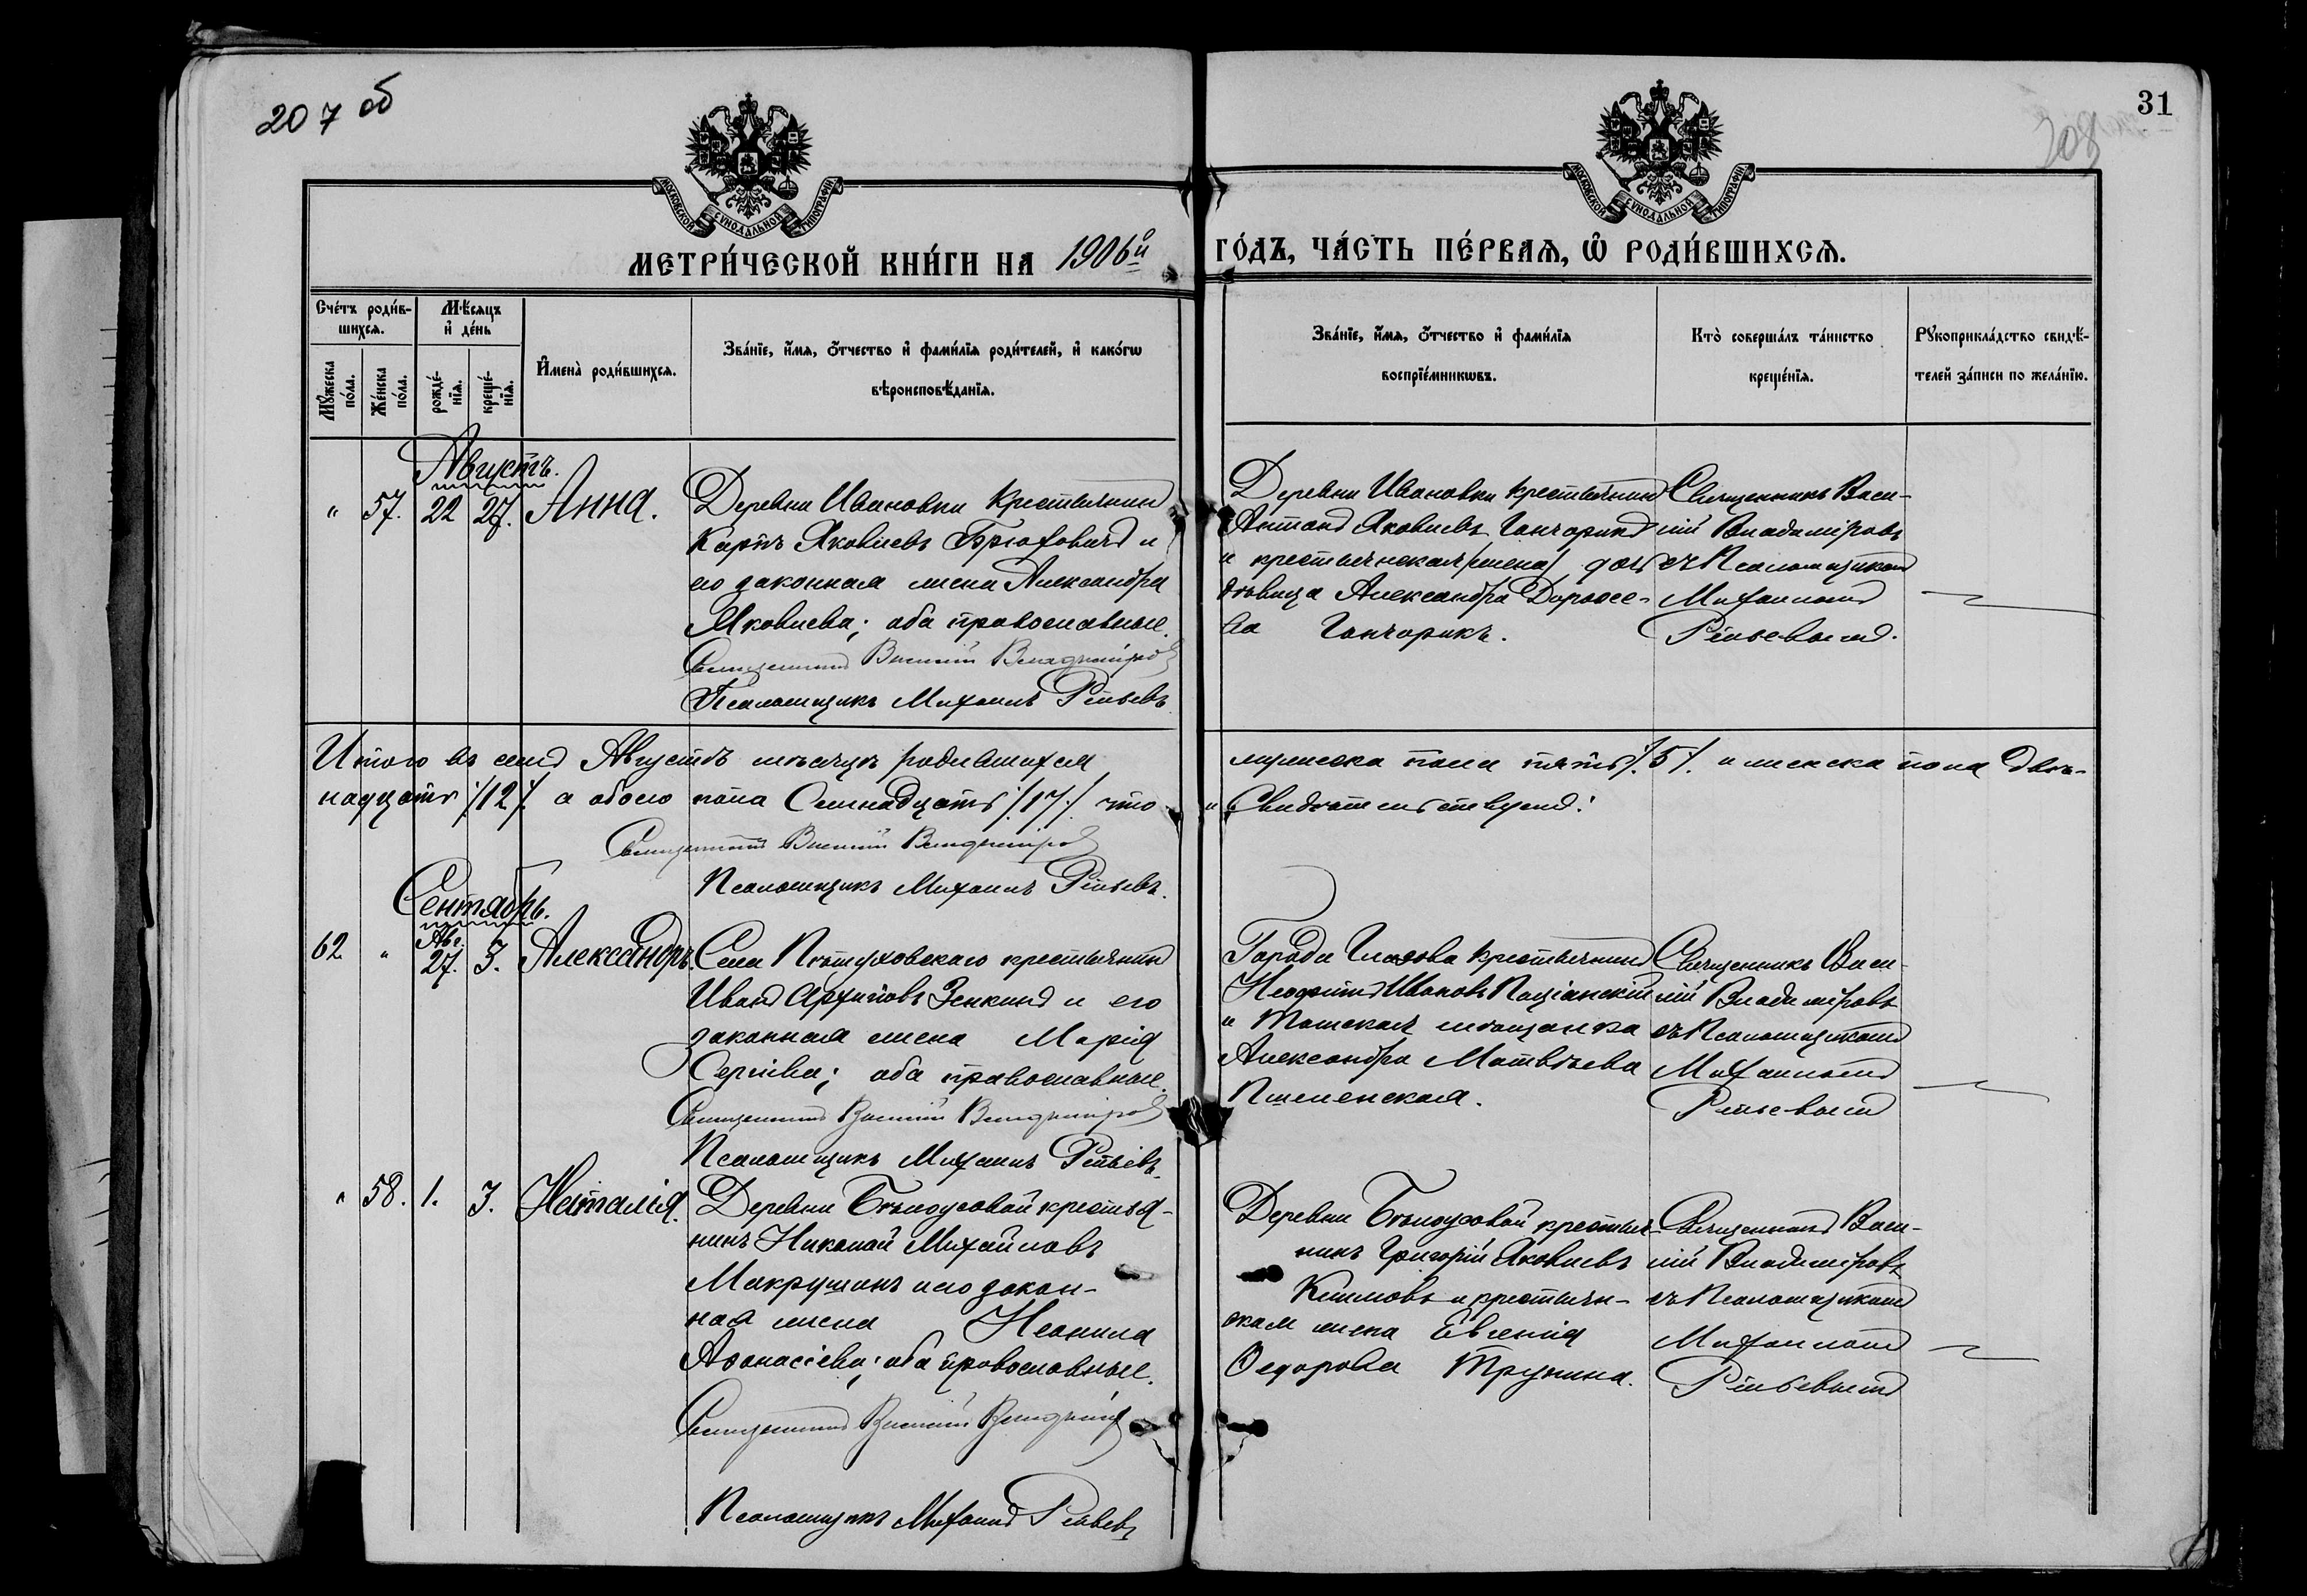 207 об
31
208
МОСКОВСКОЙ СУНОДАЛЬНОЙ ТИПОГРАФІИ
МОСКОВСКОЙ СУНОДАЛЬНОЙ ТИПОГРАФІИ
МЕТРИ́ЧЕСКОЙ КНИ́ГИ НА 1906й
ГО́ДЪ, ЧА́СТЬ ПЕ́РВАѦ, Ѡ РОДИ́ВШИХСѦ.
Сче́тъ роди́в-
шихсѧ.
Мꙋ́жеска
по́ла.
Же́нска
по́ла.
Мѣ́сѧцъ
и҆ де́нь
рожде́-
нїѧ.
креще́-
нїѧ.
И҆мена̀ роди́вшихсѧ.
Зва́нїе, и҆́мѧ, ѻ҆́тчество и҆ фами́лїѧ роди́телей, и҆ како́гѡ
вѣроисповѣ́данїѧ.
Зва́нїе, и҆́мѧ, ѻ҆́тчество и҆ фами́лїѧ
воспрїе́мникѡвъ.
Кто̀ соверша́лъ та́инство
креще́нїѧ.
Рꙋкоприкла́дство свидѣ́-
телей за́писи по жела́нїю.
Августъ.
" 57. 22 27. Анна.
Деревни Ивановки крестьянинъ
Карпъ Яковлевъ и
его законная жена Александра
Яковлева; оба православные.
Священникъ Василій Владиміровъ
Псаломщикъ Михаилъ Репьевъ
Деревни Ивановки крестьянинъ
Антонъ Яковлевъ Гончарикъ
и крестьянская /жена/ дочь
дѣвица Александра Дороѳе-
ва Гончарикъ.
Священникъ Васи-
лій Владиміровъ
съ Псаломщикомъ
Михаиломъ
Репьевымъ.
Итого въ семъ Августѣ мѣсяцѣ родившихся
мужеска пола пять /.5/. и женска пола двѣ-
надцать /.12/. а обоего пола Семнадцать /.17./ что
и Свидѣтельствуемъ:
Священникъ Василій Владиміровъ
Псаломщикъ Михаилъ Репьевъ.
Сентябрь.
62 " Авг. 27. 3. Александръ.
Села Пѣтуховскаго крестьянинъ
Иванъ Архиповъ Зенкинъ и его
законная жена Марія
Сергіева; оба православные.
Священникъ Василій Владиміровъ
Псаломщикъ Михаилъ Репьевъ.
Города Глазова крестьянинъ
Неофитъ Ивановъ
и Томская мѣщанка
Александра Матвѣева
Священникъ Васи-
лій Владиміровъ
съ Псаломщикомъ
Михаиломъ
Репьевымъ
" 58. 1. 3. Наталія.
Деревни Бѣлоусовой крестья-
нинъ Николай Михайловъ
Макрушинъ и его закон-
ная жена Неонила
Аѳанасіева; оба православные.
Священникъ Василій Владиміровъ
Псаломщикъ Михаилъ Репьевъ
Деревни Бѣлоусовой крестья-
нинъ Григорій Яковлевъ
Климовъ и крестьян-
ская жена Евгенія
Ѳедорова Трунина.
Священникъ Васи-
лій Владиміровъ
съ Псаломщикомъ
Михаиломъ
Репьевымъ